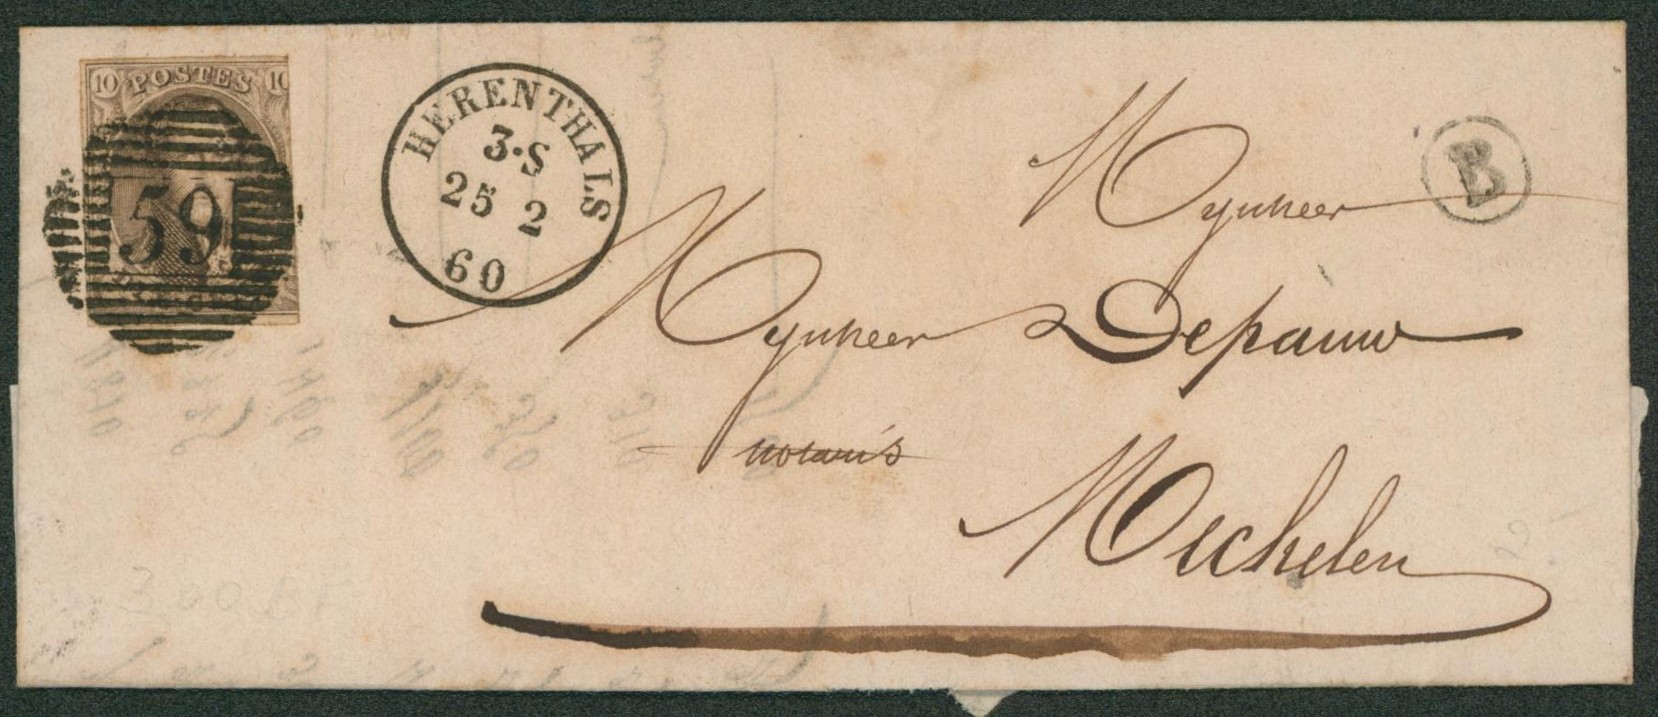 10 POSTES 10
59
HERENTHALS
3·S
25 2
60
B
Mynheer
Mynheer Depauw
notaris
Mechelen
300 BF